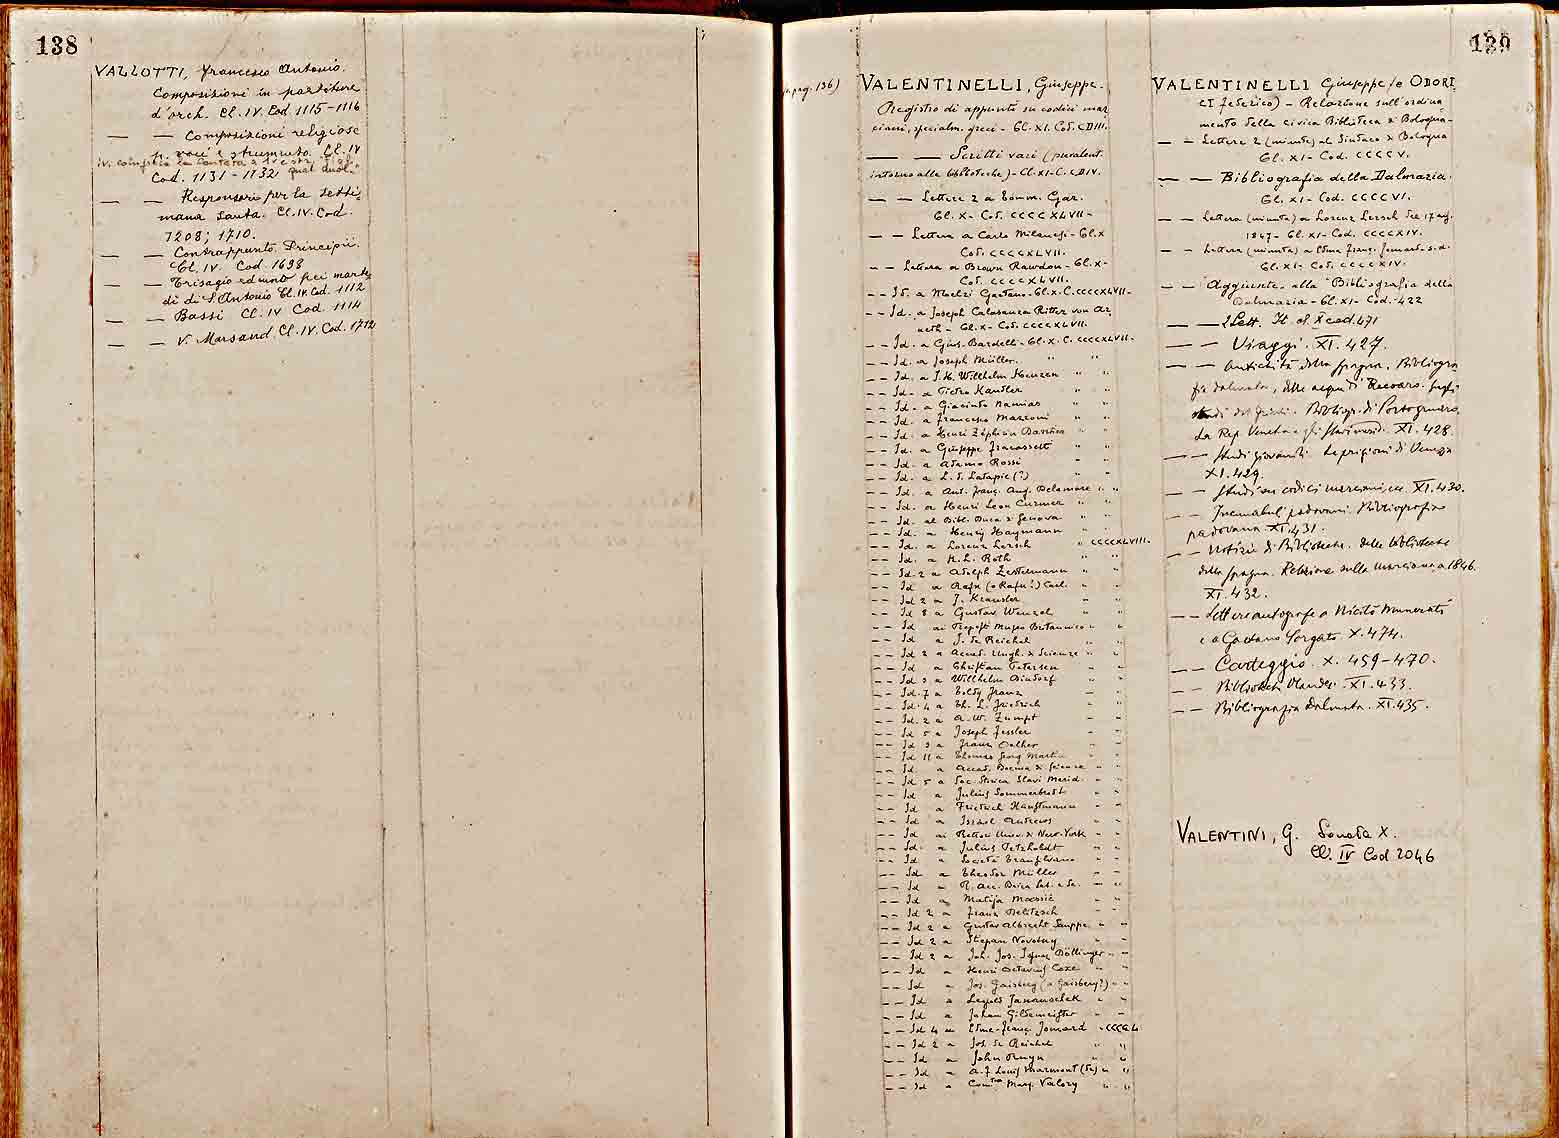 138
VALLOTTI, Francesco Antonio.
Composizioni in partitura
d'orch. Cl. IV. Cod. 1115-1116
— — Composizioni religiose
p. voci e strumento. Cl. IV
Cod. 1131-1132
— — Responsori per la setti
mana santa. Cl. IV. Cod.
1208; 1710.
— — Contrappunto. Principii.
Cl. IV. Cod. 1698
— — Trisagio ed unto pei marte
dì di S. Antonio Cl. IV. Cod. 1112
— — Bassi Cl. IV Cod. 1114
— — v. Marsand Cl. IV. Cod. 1712
139
pag. 136)
VALENTINELLI, Giuseppe.
Registro di appunti su codici mar
ciani, specialm. greci - Cl. XI. Cod. CDIII.
— — Scritti vari (prevalent.
intorno alle biblioteche) - Cl. XI- C. CDIV.
— — Lettere 2 a Tomm. Gar.
Cl. X- Cod. CCCCXLVII-
— — Lettera a Carlo Milanesi- Cl. X
Cod. CCCCXLVII.
— — Lettera a Brown Rawdon- Cl. X-
Cod. CCCCXLVII.
— — Id. a Melzi Gaetano- Cl. X. C. CCCCXLVII-
— — Id. a Joseph Calasanza Ritter von Ar
neth - Cl. X- Cod. CCCCXLVII.
— — Id. a Gius. Bardelli- Cl. X. C. CCCCXLVII-
— — Id. a Joseph Müller. " "
— — Id. a J. H. Wilhelm Henzen " "
— — Id. a Pietro Kandler " "
— — Id. a Giacinto Namias " "
— — Id. a Francesco Mazzoni " "
— — Id. a Henri Zéphirin " "
— — Id. a Giuseppe Fracassetti " "
— — Id. a Adamo Rossi " "
— — Id. a L. S. Latapie (?) " "
— — Id. a Ant. Franç. Aug. Delamare " "
— — Id. a Henri Leon Curmer " "
— — Id. al Bibl. Duca di Genova " "
— — Id. a Henry Haymann " "
— — Id. a Lorenz Lersch " CCCCXLVIII.
— — Id. a K. L. Roth " "
— — Id. 2 a Adolph Zestermann " "
— — Id a Rafn (o Kafn?) Carl. " "
— — Id 2 a J. Krausler " "
— — Id 8 a Gustav Wenzel " "
— — Id ai Preposti Museo Britannico " "
— — Id a J. de Reichel " "
— — Id 2 a Accad. Ungh. di Scienze " "
— — Id a Christian Petersen " "
— — Id 3 a Willhelm Dindorf " "
— — Id. 7 a Toldy Franz — "
— — Id. 4 a Th. L. Friedrich " "
— — Id. 2 a A. W. Zumpt " "
— — Id 5 a Joseph Fessler " "
— — Id 3 a Franz Oelher " "
— — Id 11 a Thomas Georg Martin " "
— — Id. a Accad. Boema di Scienze " "
— — Id 5 a Soc. Storica Slavi Merid. " "
— — Id a Julius Sommerbrodt " "
— — Id a Friedrich Hauptmann " "
— — Id a Israel Andrews " "
— — Id ai Rettori Univ. di New-York " "
— — Id. a Julius Petzholdt " "
— — Id a Società Transilvana " "
— — Id a Theodor Müller " "
— — Id a R. Acc.
— — Id a Matija " "
— — Id 2 a Franz Delitzsch " "
— — Id 2 a Gustav Albrecht Sauppe " "
— — Id 2 a Stepan Novotny " "
— — Id 2 a Joh. Jos. Ignaz Döllinger " "
— — Id a Henri Octavius Coxe " "
— — Id a Jos. Gaisberg (o Gaisberg?) " "
— — Id a Leopold Janauschek " "
— — Id a Johan Gildemeister " "
— — Id 4 a Edme-Franç. Jomard
— — Id 2 a Jos. de Reichel " "
— — Id a John " "
— — Id a A. F. Louis Marmont (de) " "
— — Id a Marq. Valory " "
VALENTINELLI Giuseppe (e ODORI
CI Federico) - Relazione sull'ordina
mento della civica Biblioteca di Bologna-
— — Lettere 2 (minute) al Sindaco di Bologna
Cl. XI- Cod. CCCCV.
— — Bibliografia della Dalmazia.
Cl. XI- Cod. CCCCVI.
— — Lettera (minuta) a Lorenz Lersch del 17 aug.
1847- Cl. XI- Cod. CCCCXIV.
— — Lettera (minuta) a Edme Franç. Jomard s. d.
Cl. XI- Cod. CCCCXIV.
— — Aggiunte alla "Bibliografia della
Dalmazia- Cl. XI- Cod.-422
— — 2 Lett. It. cl. X cod. 471
— — Viaggi. XI. 427.
— — Antichità della Spagna. Bibliogra
fia dalmata, delle acque di Recoaro. Sugli
studi dei Bibliogr. di Portogruaro.
La Rep. Veneta e gli XI. 428.
— — Studi giovanili. Le prigioni di Venezia
XI. 429.
— — Studi su codici marciani, ecc. XI. 430.
— — Incunabuli padovani. Bibliografia
padovana XI. 431.
— — Notizie di Biblioteche. delle biblioteche
della Spagna. Relazione sulla Marciana a 1846.
XI. 432.
— — Lettere autografe a Nicolò
e a Gaetano Sorgato. X. 474.
— — Carteggio. X. 459-470.
— — Biblioteche Olandesi. XI. 433.
— — Bibliografia Dalmata. XI. 435.
VALENTINI, G. Sonata X.
Cl. IV Cod 2046